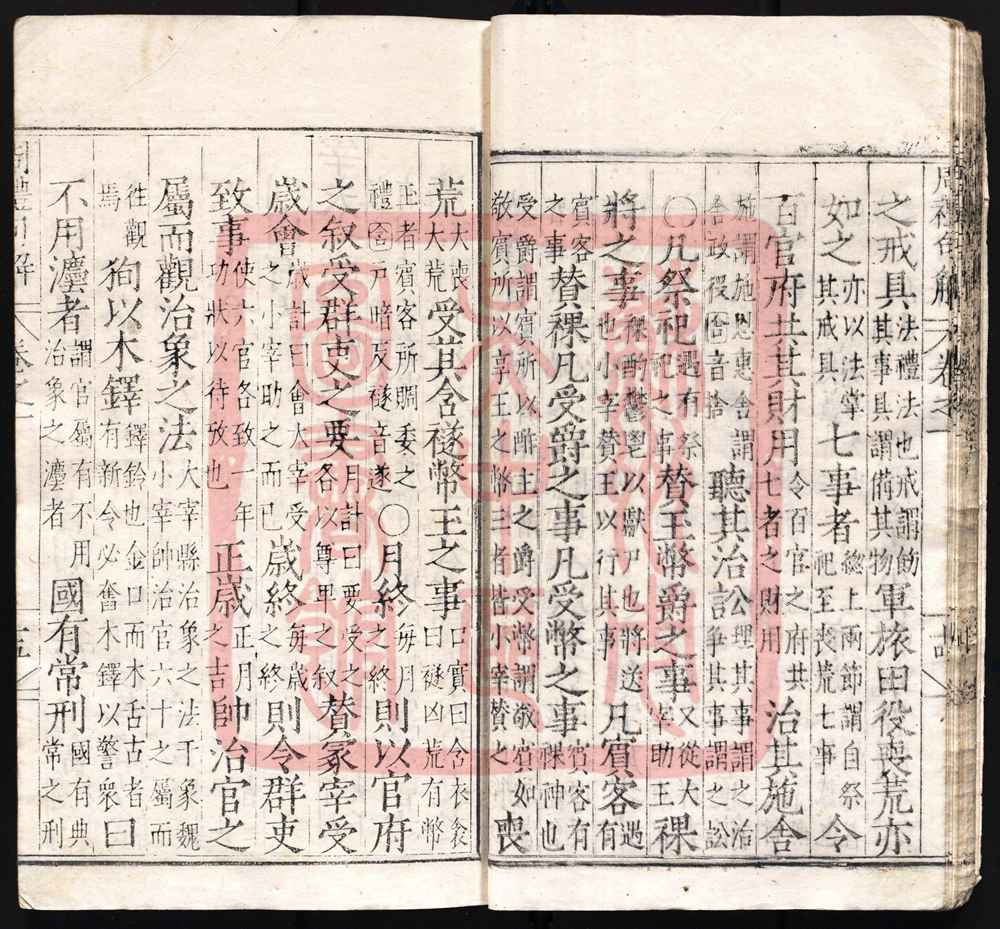 周禮句解 卷之一
之戒具 法禮法也戒謂飭其事具謂備其物 軍旅田役喪荒亦
如之 亦以法掌其戒具 七事者 總上兩節謂自祭祀至喪荒七事 令
百官府共其財用 令百官之府共七者之財用 治其施舍
施謂施恩惠舍謂舍政役舍音捨 聽其治訟 理其事謂之治爭其事謂之訟
〇凡祭祀 遇有祭祀之事 贊玉幣爵之事 又從大宰助王 祼
將之事 祼酌鬱鬯以獻尸也將送也小宰贊王以行其事 凡賓客 遇有
賓客之事 贊祼凡受爵之事凡受幣之事 賓客有祼神也
受爵謂賓所以酢主之爵受幣謂敬賓如敬賓所以享王之幣三者皆小宰贊之 喪
荒 大喪大荒 受其含襚幣玉之事 口實曰含衣衾曰襚凶荒有幣
玉者賓客所賙委之禮含戶暗反襚音遂 〇月終 每月之終 則以官府
之敘受群吏之要 月計曰要受之各以尊卑之敘 贊冢宰受
歲會 歲計曰會大宰受之小宰助之而已 歲終 每歲之終 則令群吏
致事 使六官各致一年功狀以待攷也 正歲 正月之吉 帥治官之
屬而觀治象之法 大宰縣治象之法于象魏小宰帥治官六十之屬而
往觀焉 狥以木鐸 鐸鈴也金口而木舌古者有新令必奮木鐸以警衆 曰
不用灋者 謂官屬有不用治象之灋者 國有常刑 國有典常之刑
周禮句解 卷之一 十五